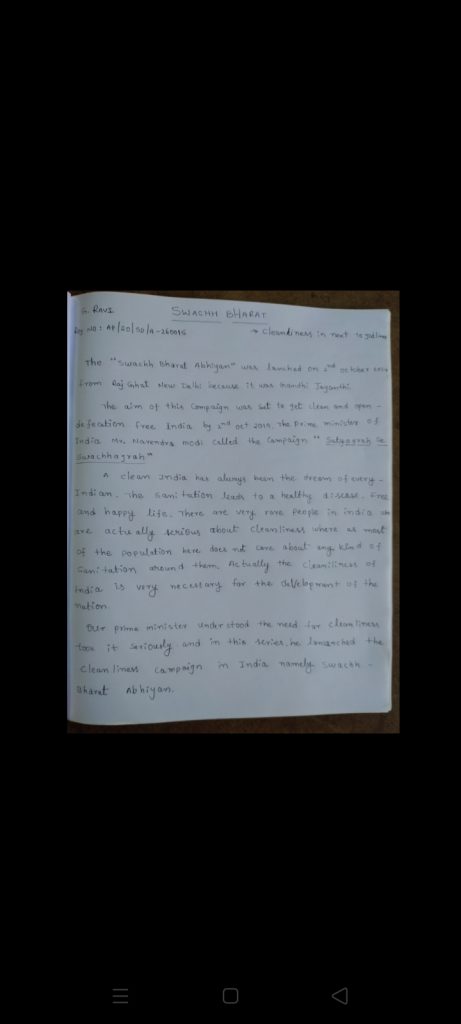 G. Ravi
SWACHH BHARAT
Reg NO: AP/SD/SD/A-260015
→ Cleanliness in next to godlin
The "Swachh Bharat Abhiyan" was lanched on 2nd october
from Raj Ghat New Delhi because it was Gandhi Jayanthi.
The aim of this Campaign was set to get clean and open -
defecation free India by 2nd oct 2019. The prime minister of
India Mr. Narendra modi called the Campaign " Satyagrah se
Swachhagrah"
A clean India has always been the dream of every -
Indian. The Sanitation leads to a healthy disease. Free
and happy life. There are very rare People in india
are actually serious about cleanliness where as most
of the population here does not care about any kind of
Sanitation around them. Actually the cleanliness of
India is very necessary for the development of the
nation.
Our prime minister understood the need for cleanliness
took it seriously and in this series, he launched the
cleanliness campaign in India namely Swachh -
Bharat Abhiyan.